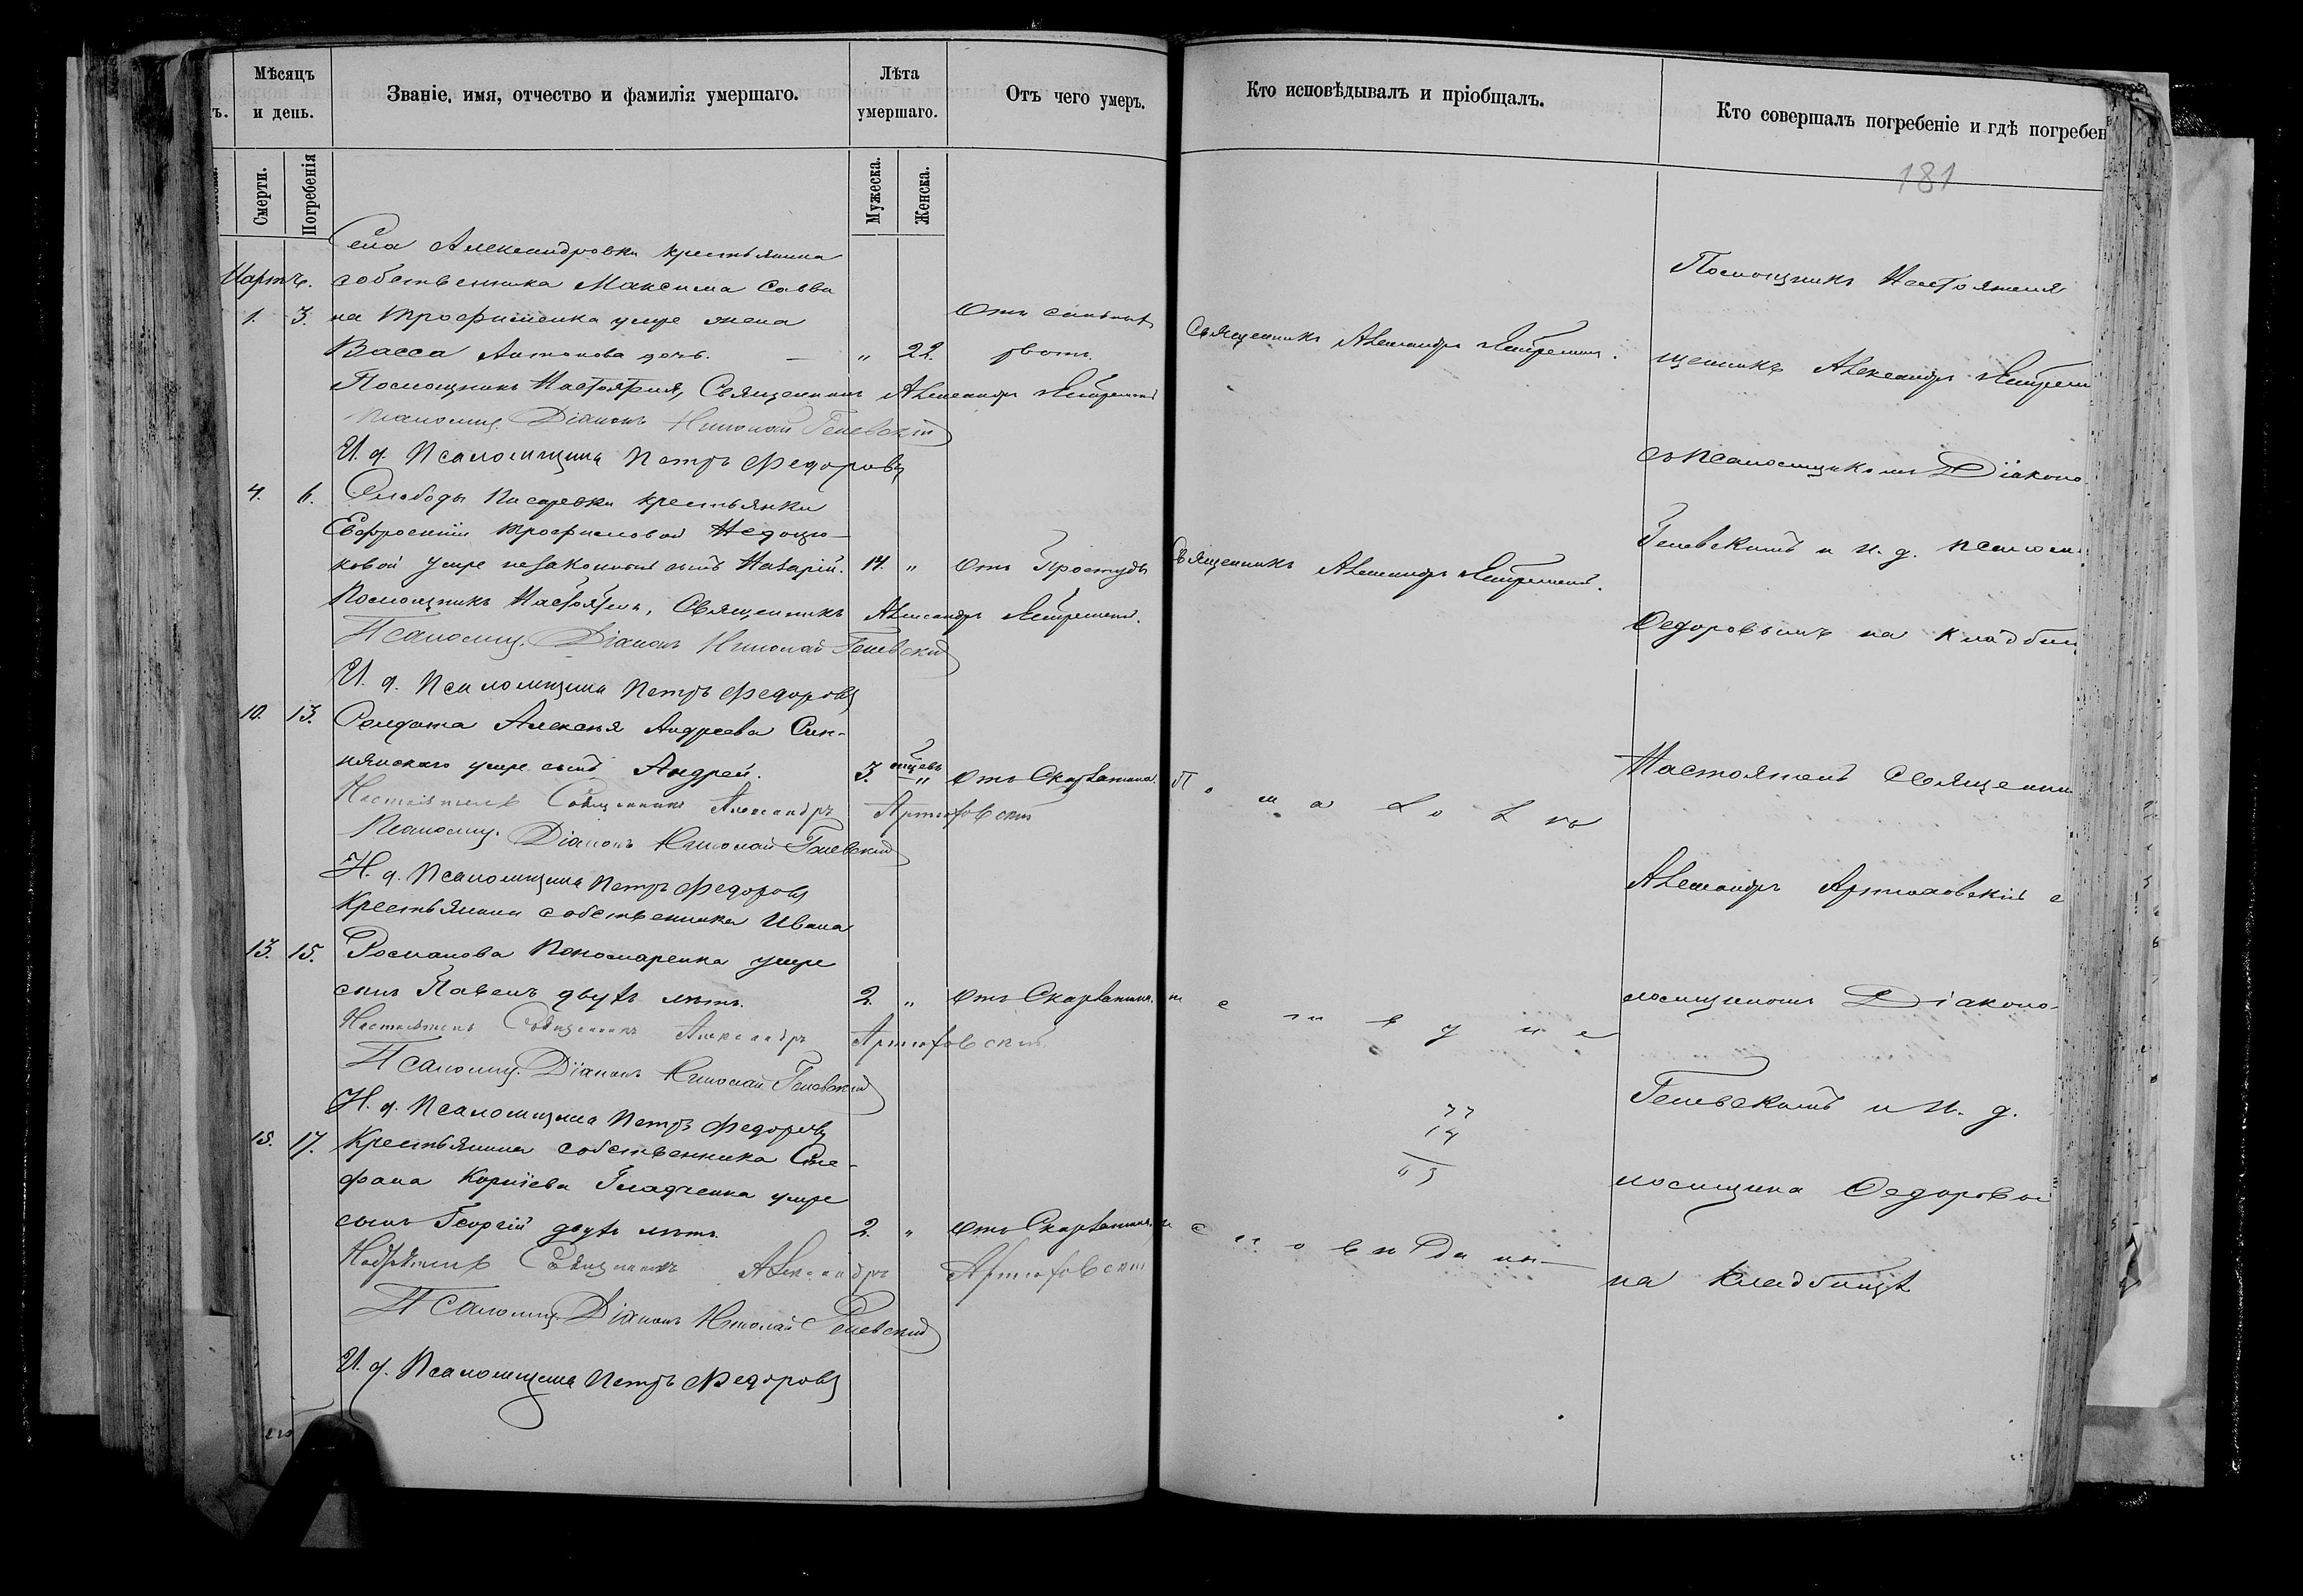 Мѣсяцъ и день.
Званіе, имя, отчество и фамилія умершаго.
Лѣта умершаго.
Отъ чего умеръ.
Кто исповѣдывалъ и пріобщалъ.
Кто совершалъ погребеніе и гдѣ погребен
ъ.
Смерти.
Погребенія
Мужеска.
Женска.
181
Села Александровки крестьянина
Мартъ. собственника Максима Савви
1. 3. на Трофименка умре жена
Васса Антонова дочь. — „ 22.
Отъ сильныхъ
рвотъ.
Священникъ Александръ
Помощникъ Настоятеля, Священникъ Александръ
Псаломщ. Діаконъ Николай Геневскій
И. д. Псаломщика Петръ Федоровъ
4. 6. Слободы Писаревки крестьянки
Евфросиніи Трофимовой Недоцю-
ковой умре незаконный сынъ Назарій. 14. „ Отъ Простуды
Священникъ Александръ
Помощникъ Настоятеля, Священникъ Александръ
Псаломщ. Діаконъ Николай Геневскій
И. д. Псаломщика Петръ Федоровъ
10. 13. Солдата Алексѣя Андреева Син-
нянскаго умре сынъ Андрей. 3. мѣсцевъ „ Отъ Скарлатина.
Настоятель Священникъ Александръ Артюховскій
Псаломщ. Діаконъ Николай Геневскій
И. д. Псаломщика Петръ Федоровъ
Крестьянина собственника Ивана
13. 15. Романова Пономаренка умре
сынъ Павелъ двухъ лѣтъ. 2. „ Отъ Скарлатины.
Настоятель Священникъ Александръ Артюховскій
Псаломщ. Діаконъ Николай Геневскій
И. д. Псаломщика Петръ Федоровъ
15. 17. Крестьянина собственника Сте-
фана Корніева Гладченка умре
сынъ Георгій двухъ лѣтъ. 2. „ Отъ Скарлатины.
Настоятель Священникъ Александръ Артюховскій
Псаломщ. Діаконъ Николай Геневскій
И. д. Псаломщика Петръ Федоровъ
По малолѣт
ству не
исповѣданы
Помощникъ Настоятеля
щенникъ Александръ
съ псаломщикомъ Діаконо
Геневскимъ и и. д. псалом
Федоровымъ на кладбищ
Настоятель Священни
Александръ Артюховскій с
ломщикомъ Діаконо-
Геневскимъ и И. д.
ломщика Федоровы
на кладбищѣ